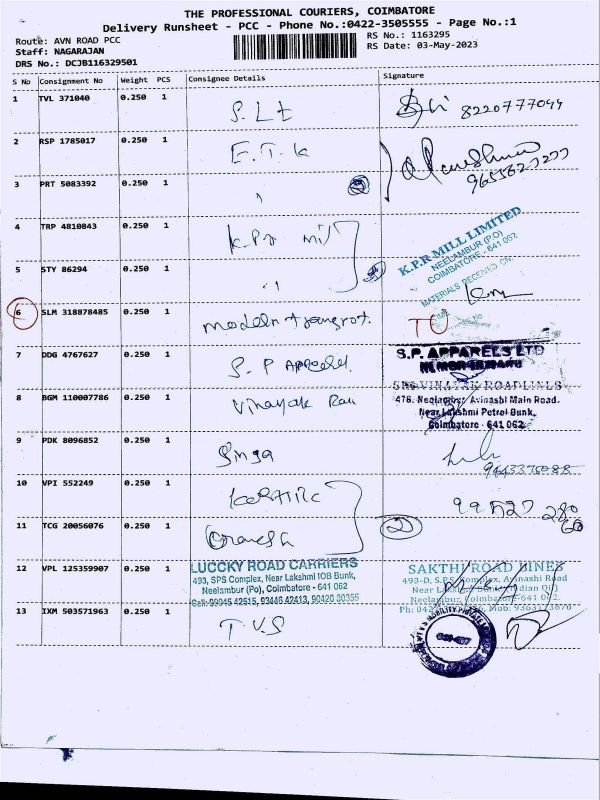 THE PROFESSIONAL COURIERS, COIMBATORE
Delivery Runsheet - PCC - Phone No.:0422-3505555 - Page No.:1
Route: AVN ROAD PCC
RS No.: 1163295
Staff: NAGARAJAN
RS Date: 03-May-2023
DRS No.: DCJB116329501
S No Consignment No Weight PCS Consignee Details Signature
1 TVL 371040 0.250 1 S. Lt 8220777044
2 RSP 1785017 0.250 1 E.T.K
3 PRT 5083392 0.250 1 "
4 TRP 4810843 0.250 1 K.P.R mill
K.P.R MILL LIMITED
NEELAMBUR (P.O)
COIMBATORE - 641 062
MATERIALS RECEIVED ON
5 STY 86294 0.250 1 "
6 SLM 318878485 0.250 1 modern transport.
7 DDG 4767627 0.250 1 S. P Apparel
S.P. APPARELS LTD
8 BGM 110007786 0.250 1 Vinayak
SRI VINAYAK ROADLINES
476. Neelambur Avinashi Main Road.
Near Lakshmi Petrol Bunk,
Coimbatore - 641 062
9 PDK 8096852 0.250 1 Singa
10 VPI 552249 0.250 1
11 TCG 20056076 0.250 1 Ganesh 2
12 VPL 125359907 0.250 1
LUCCKY ROAD CARRIERS
493, SPS Complex, Near Lakshmi IOB Bunk,
Neelambur (Po), Coimbatore - 641 062
Cell: 99945 42515, 93446 42413, 90420 30355
SAKTHI ROAD LINES
493-D, S.P.S Complex, Avinashi Road
Neelambur, Coimbatore-641 062.
13 IXM 503571963 0.250 1 T.V.S